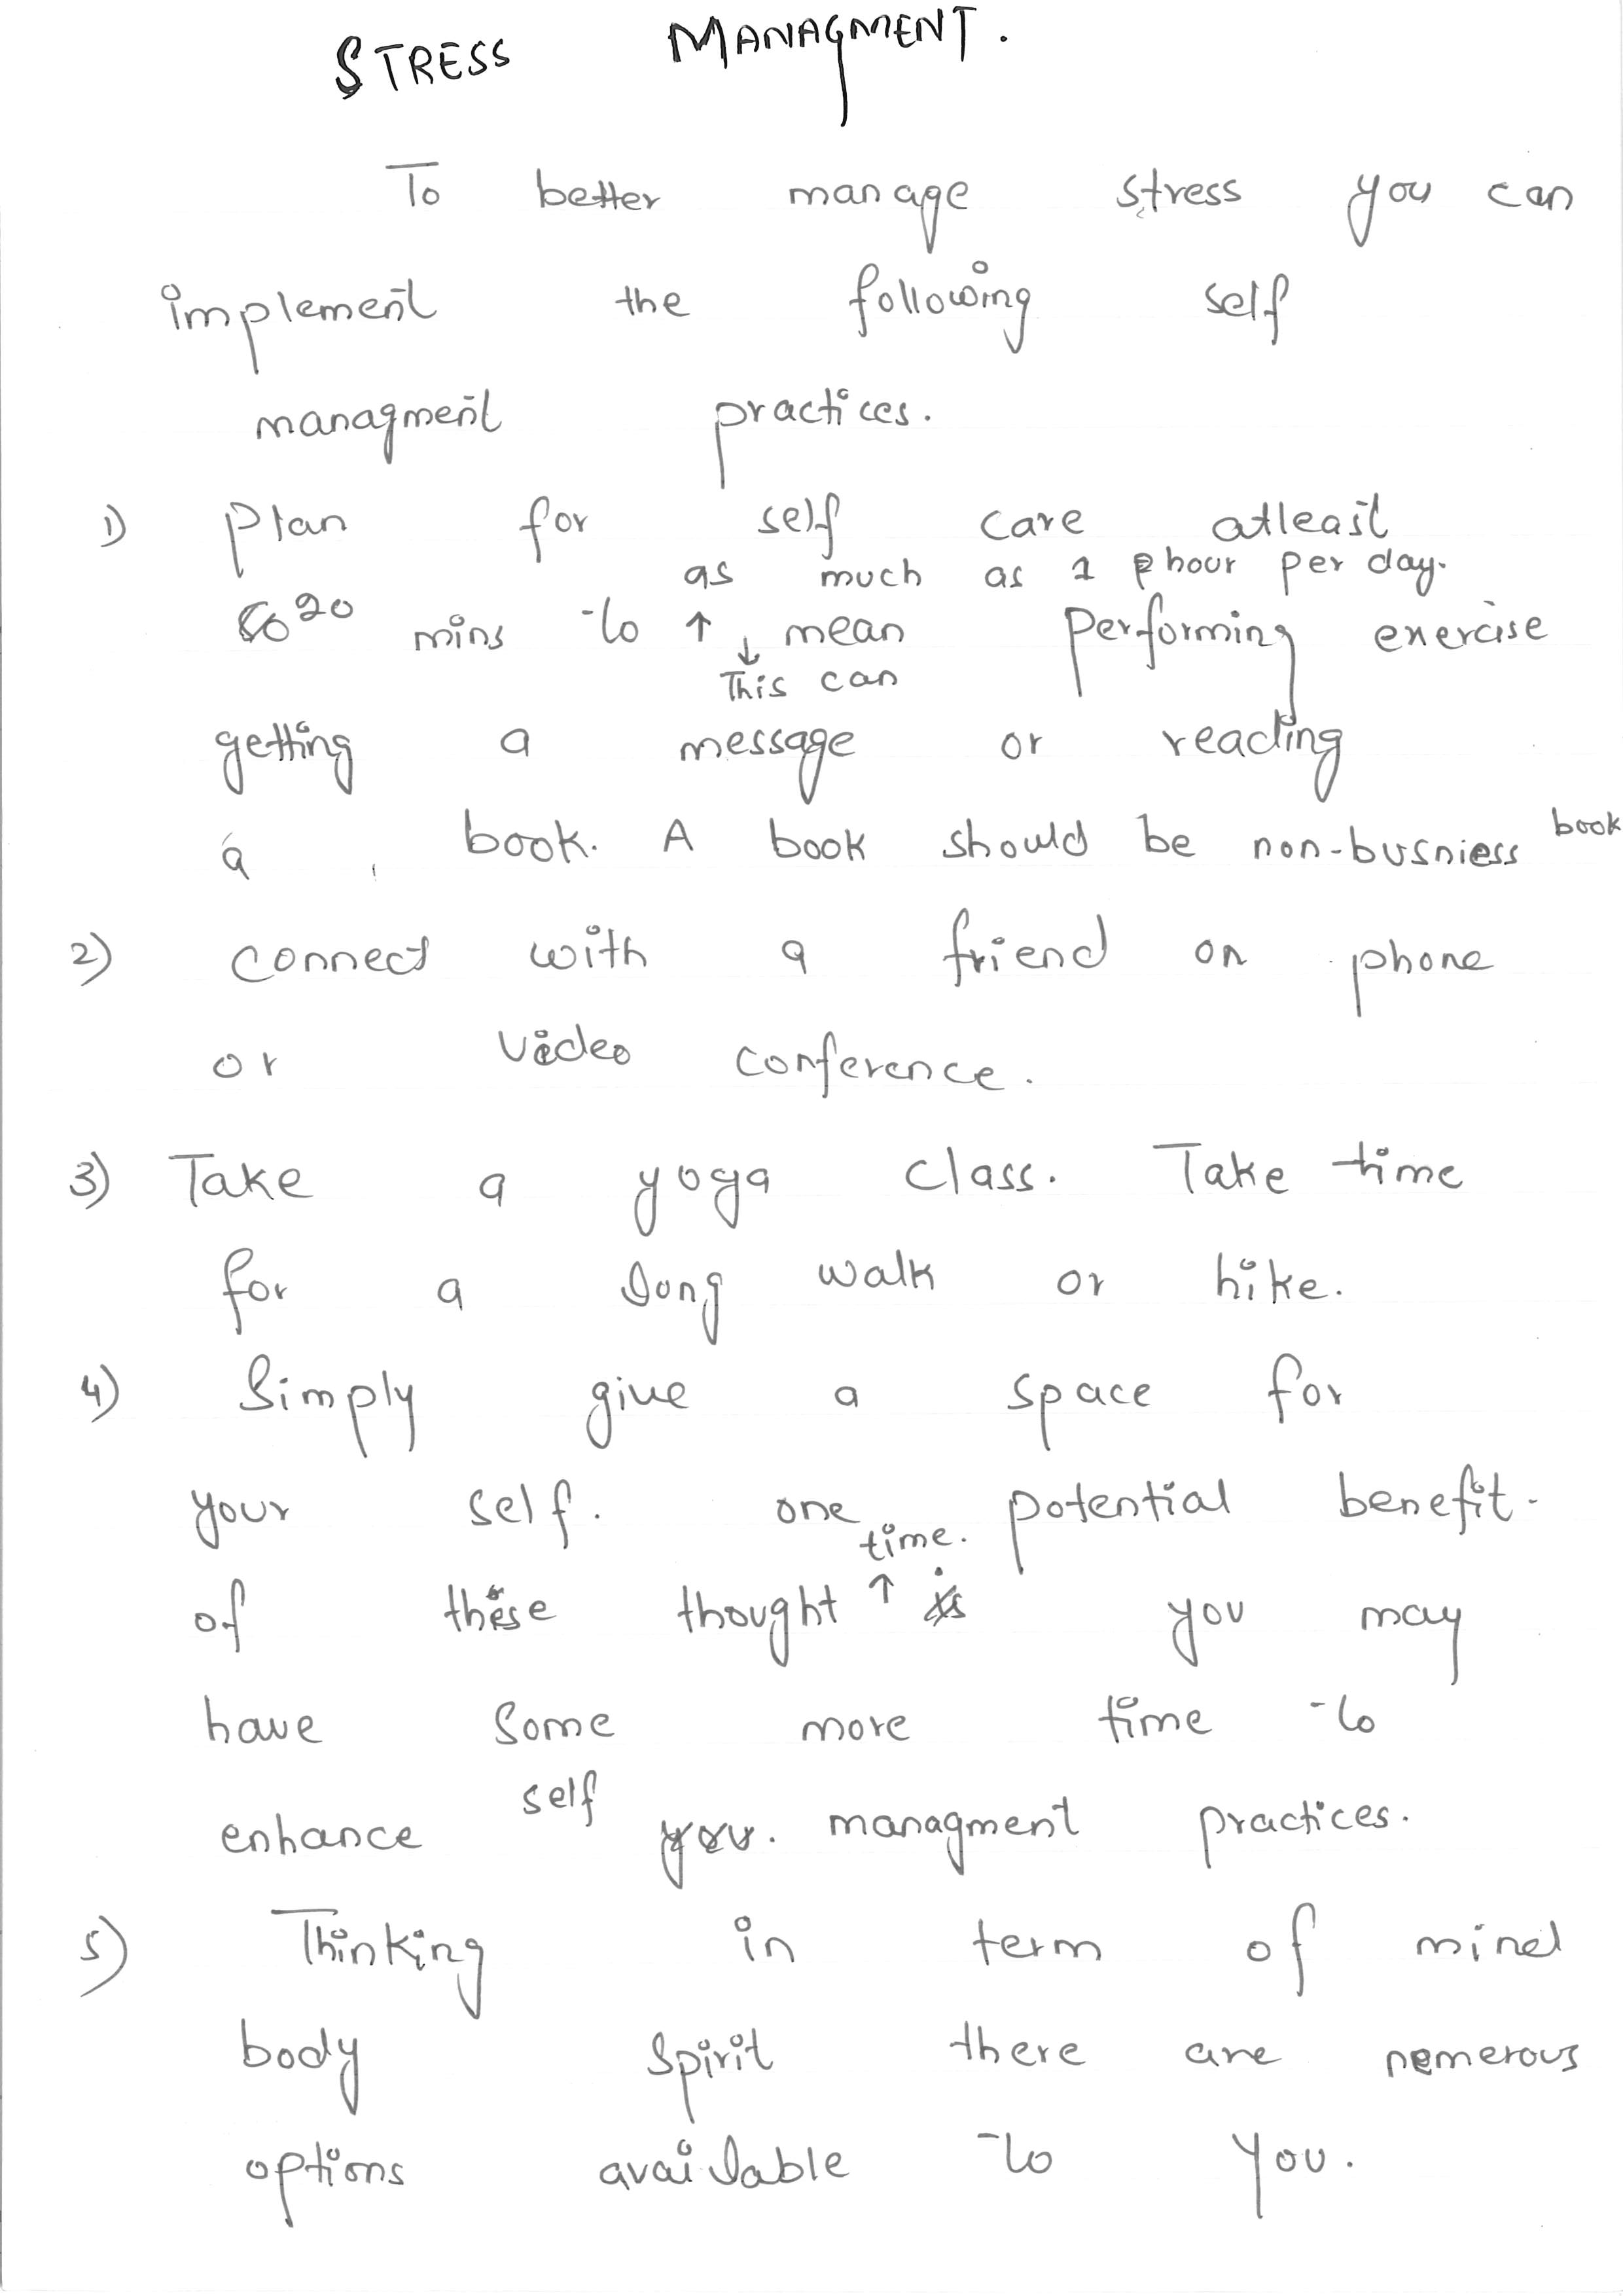 STRESS MANAGMENT.
To better manage stress you can
implement the following self
managment practices.
1) Plan for self care atleast
as much as 1 hour per day.
20 mins to ↑ ↓ mean performing exercise
This can
getting a message or reading
a book. A book should be non-busniess book
2) connect with a friend on phone
or video conference.
3) Take a yoga class. Take time
for a long walk or hike.
4) Simply give a space for
your self. one potential benefit.
time.
of these thought ↑ is you may
have some more time to
self
enhance you. managment practices.
5) Thinking in term of mind
body spirit there are nemerous
options available to you.